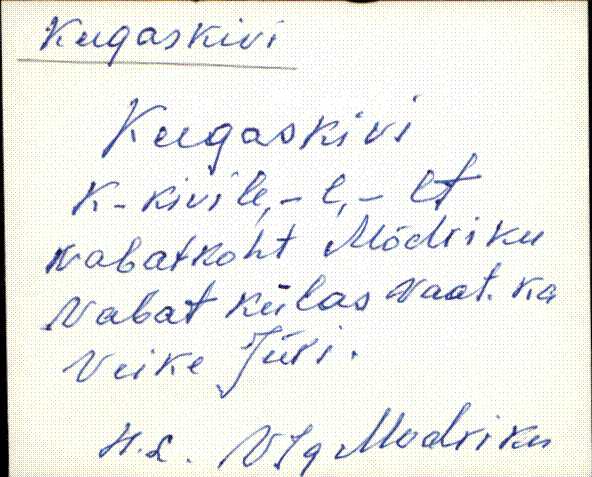 Kugaskivi
Kugaskivi
K-kivile, -l, -lt
vabatkoht Mõdriku
Vabat külas vaat. ka
Veike Jüri.
H.L. VJg Modriku